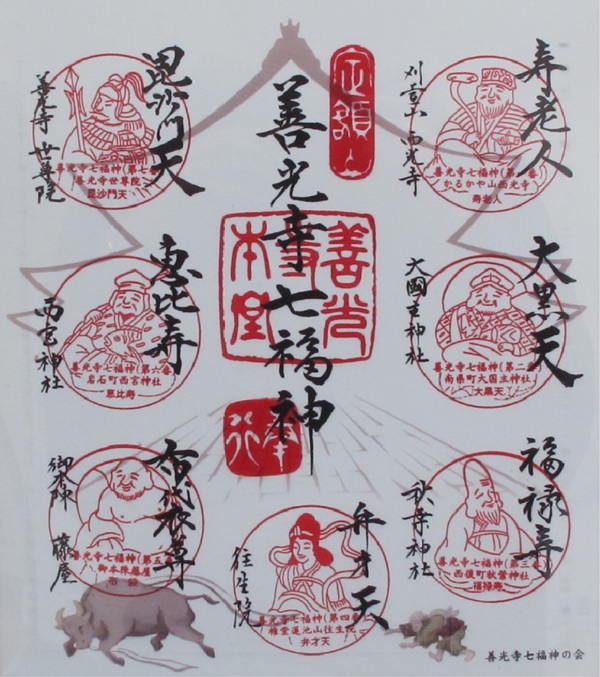 定額山
善光寺七福神
善光寺本堂
奉行
寿老人
刈萱山 西光寺
善光寺七福神(第一番)
かるかや山西光寺
寿老人
大黒天
大國主神社
善光寺七福神(第二番)
南県町大国主神社
大黒天
福禄寿
秋葉神社
善光寺七福神(第三番)
西後町秋葉神社
福禄寿
弁才天
往生院
善光寺七福神(第四番)
権堂蓮池山往生院
弁才天
布代和尊
御本陣 藤屋
善光寺七福神(第五番)
御本陣藤屋
布袋
恵比寿
西宮神社
善光寺七福神(第六番)
岩石町西宮神社
恵比寿
毘沙門天
善光寺 世尊院
善光寺七福神(第七番)
善光寺世尊院
毘沙門天
善光寺七福神の会